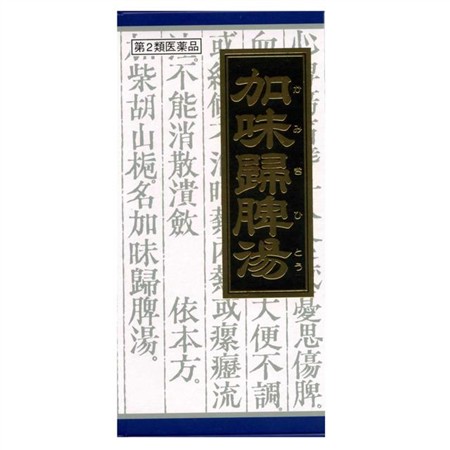 第2類医薬品
加味歸脾湯
かみきひとう
憂思傷脾。
血
大便不調。
熱內熱或瘰癧流
注。不能消散潰斂 依本方。
加柴胡山梔名加味歸脾湯。